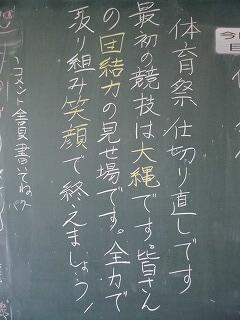 体育祭 仕切り直しです
最初の競技は大縄です。皆さん
の団結力の見せ場です。全力で
取り組み笑顔で終えましょう!
コメント全員書いてね